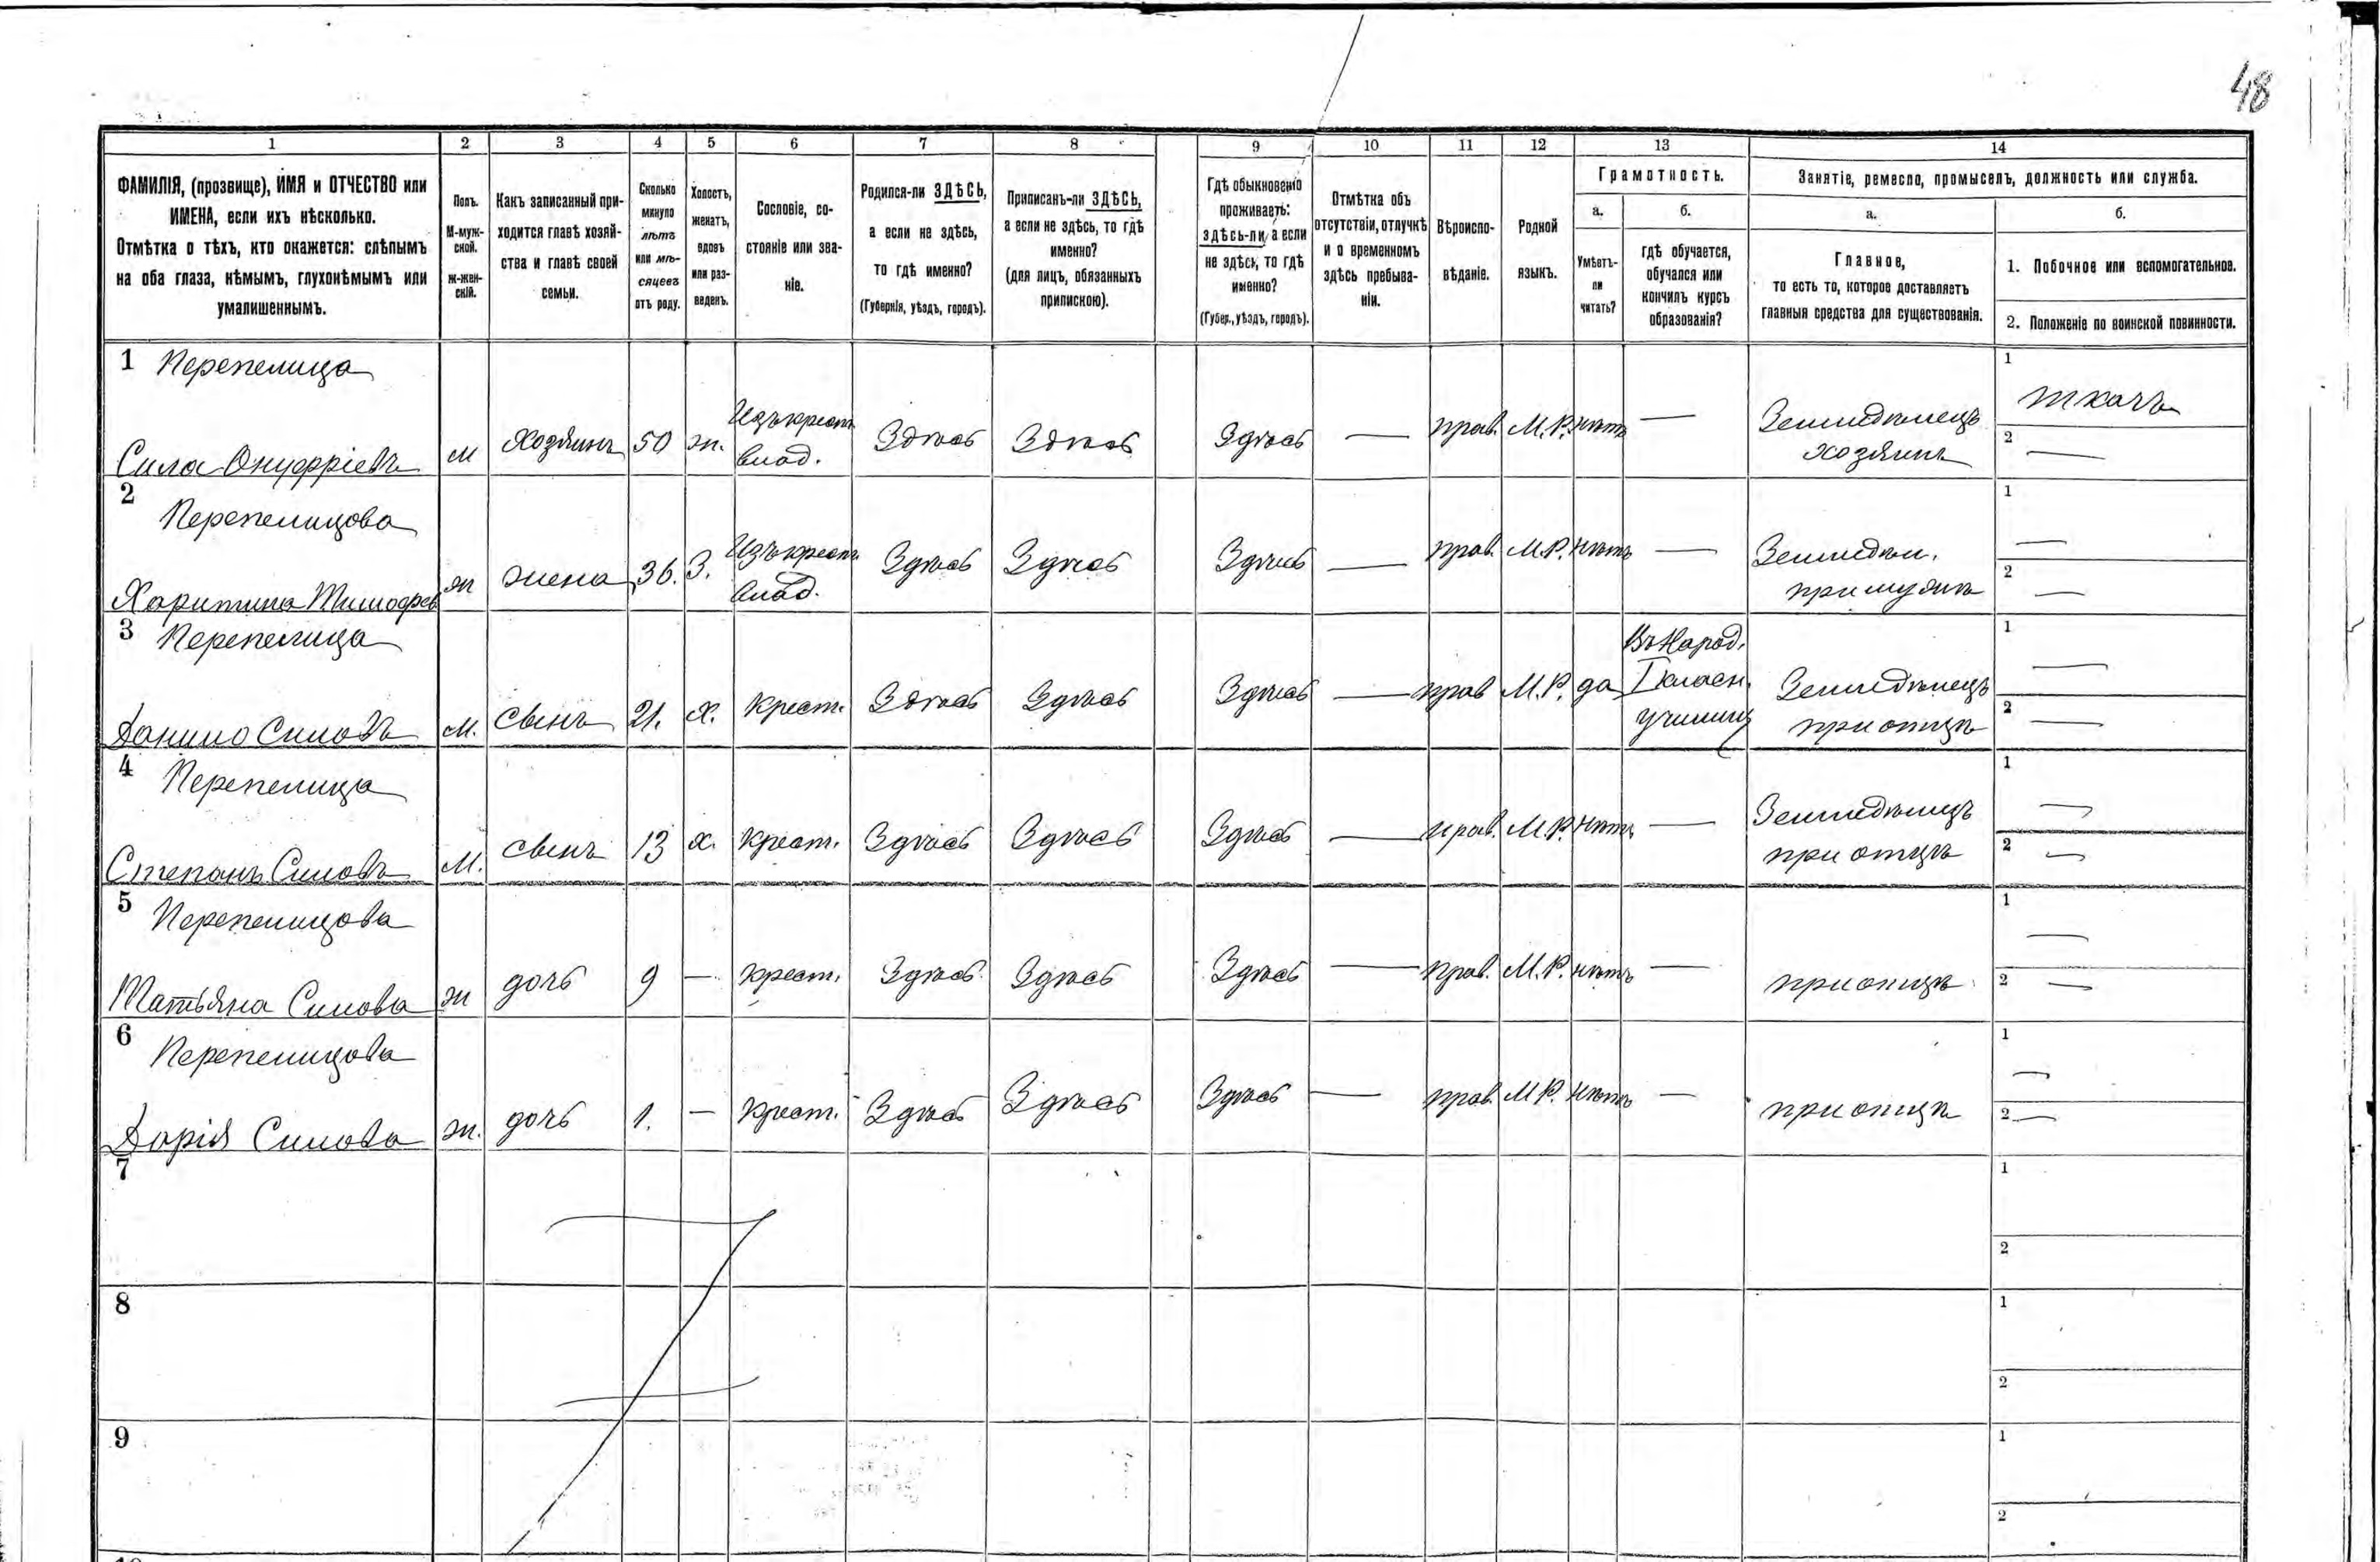 48
1 2 3 4 5 6 7 8 9 10 11 12 13 14
ФАМИЛІЯ, (прозвище), ИМЯ и ОТЧЕСТВО или
ИМЕНА, если ихъ нѣсколько.
Отмѣтка о тѣхъ, кто окажется: слѣпымъ
на оба глаза, нѣмымъ, глухонѣмымъ или
умалишеннымъ.
Полъ.
М-муж-
ской.
ж-жен-
скій.
Какъ записанный при-
ходится главѣ хозяй-
ства и главѣ своей
семьи.
Сколько
минуло
лѣтъ
или мѣ-
сяцевъ
отъ роду.
Холостъ,
женатъ,
вдовъ
или раз-
веденъ.
Сословіе, со-
стояніе или зва-
ніе.
Родился-ли ЗДѢСЬ,
а если не здѣсь,
то гдѣ именно?
(Губернія, уѣздъ, городъ).
Приписанъ-ли ЗДѢСЬ,
а если не здѣсь, то гдѣ
именно?
(для лицъ, обязанныхъ
припискою).
Гдѣ обыкновенно
проживаетъ:
здѣсь-ли, а если
не здѣсь, то гдѣ
именно?
(Губер., уѣздъ, городъ).
Отмѣтка объ
отсутствіи, отлучкѣ
и о временномъ
здѣсь пребыва-
ніи.
Вѣроиспо-
вѣданіе.
Родной
языкъ.
Грамотность.
а.
Умѣетъ-
ли
читать?
б.
гдѣ обучается,
обучался или
кончилъ курсъ
образованія?
Занятіе, ремесло, промыселъ, должность или служба.
а.
Главное,
то есть то, которое доставляетъ
главныя средства для существованія.
б.
1. Побочное или вспомогательное.
2. Положеніе по воинской повинности.
1 Перепелица
Сила Онуфріевъ м Хозяинъ 50 ж. Изъ крест. влад. Здѣсь Здѣсь Здѣсь — прав. М.Р. нѣтъ — Земледѣлецъ хозяинъ 1 ткачъ 2 —
2 Перепелицова
Харитина Тимофеев ж жена 36. З. Изъ крест. влад. Здѣсь Здѣсь Здѣсь — прав. М.Р. нѣтъ — Земледѣл. при мужѣ 1 — 2 —
3 Перепелица
Данило Силовъ м. сынъ 21. х. крест. Здѣсь Здѣсь Здѣсь — прав М.Р. да Въ Народ. училищ Земледѣлецъ при отцѣ 1 — 2 —
4 Перепелица
Степанъ Силовъ м. сынъ 13 х. крест. Здѣсь Здѣсь Здѣсь — прав. М.Р. нѣтъ — Земледѣлецъ при отцѣ 1 — 2 —
5 Перепелицова
Татьяна Силова ж дочь 9 — крест. Здѣсь Здѣсь Здѣсь — прав. М.Р. нѣтъ — при отцѣ 1 — 2 —
6 Перепелицова
Дарія Силова ж. дочь 1. — крест. Здѣсь Здѣсь Здѣсь — прав. М.Р. нѣтъ — при отцѣ 1 — 2 —
7 1
2
8 1
2
9 1
2